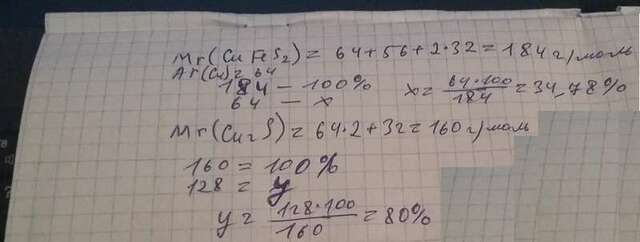 Mr(CuFeS2) = 64+56+2·32 = 184 г/моль
Ar(Cu) = 64
184 – 100%
64 – x
x = 64·100/184 = 34,78%
Mr(Cu2S) = 64·2+32 = 160 г/моль
160 = 100%
128 = y
y = 128·100/160 = 80%